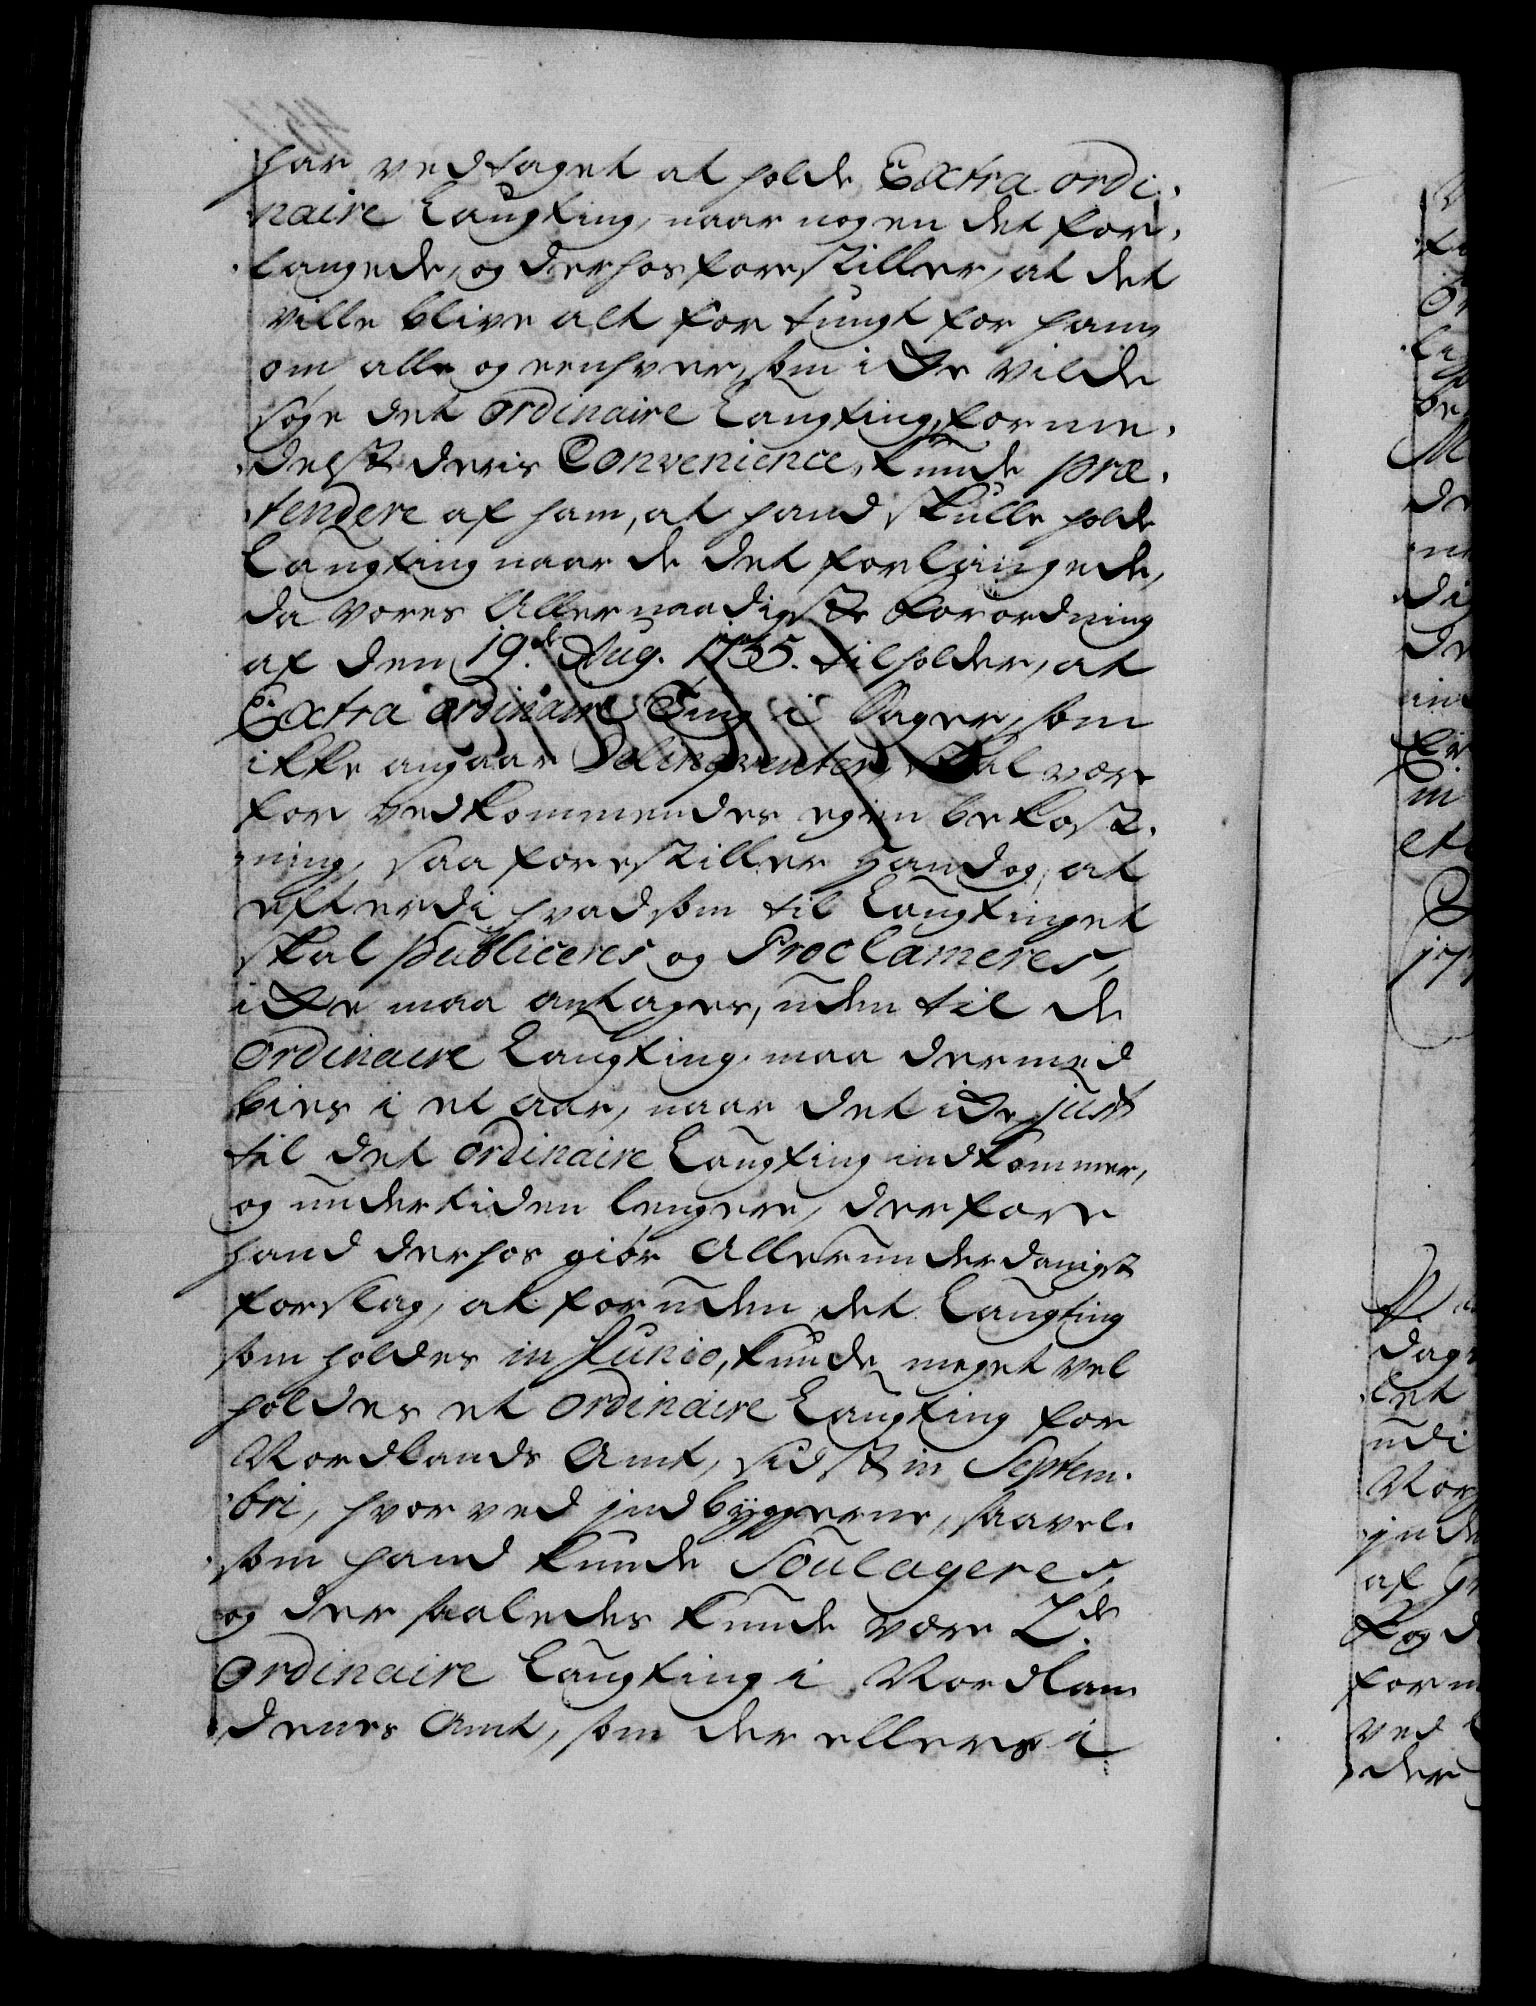 har vedtaget at holde Extra ordi-
naire Laugting, naar nogen det for-
langede, og derhos forestiller, at det
ville blive alt for tungt for ham,
om alle og eenhver, som icke vilde
søge det ordinaire Laugting, forme-
delst deris Convenience, kunde præ-
tendere af ham, at hand skulle holde
Laugting naar de det forlangede,
da vores Allernaadigste Forordning
af den 19de Aug. 1735. tilholder, at
Extra ordinaire Ting i Sager, som
ikke angaar Delinqventer, skal være
for vedkommendes egen bekost-
ning, saa forestiller Hand og, at
efterdi hvad som til Laugtinget
skal Publiceres og Proclameres,
icke maa antages, uden til de
ordinaire Laugting, maa dermed
bies i et aar, naar det icke just
til det ordinaire Laugting indkommer,
og undertiden lengere, derfore
hand derhos giør Allerunderdanigst
forslag, at foruden det Laugting
som holdes in Junio, kunde meget vel
holdes et ordinaire Laugting for
Nordlands Amt, sidst in Septem-
bri, hvorved indbyggerne, saavel-
som hand kunde Soulageres,
og der saaledes kunde være 2de
ordinaire Laugting i Nordlan
denes Amt, som der ellers i